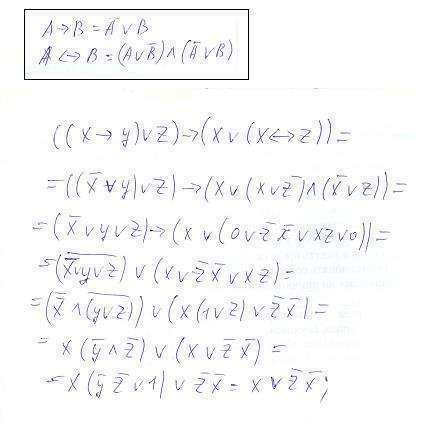 A → B = Ā ∨ B
A ↔ B = (A ∨ B̄) ∧ (Ā ∨ B)
((x → y) ∨ z) → (x ∨ (x ↔ z)) =
= ((x̄ ∨ y) ∨ z) → (x ∨ (x ∨ z̄) ∧ (x̄ ∨ z)) =
= (x̄ ∨ y ∨ z) → (x ∨ (0 ∨ z̄ x̄ ∨ x z ∨ 0)) =
= (x̄̅ ∨̅ y̅ ∨̅ z̅) ∨ (x ∨ z̄ x̄ ∨ x z) =
= (x̄̅ ∧ (y̅ ∨̅ z̅)) ∨ (x (1 ∨ z) ∨ z̄ x̄) =
= x (ȳ ∧ z̄) ∨ (x ∨ z̄ x̄) =
= x (ȳ z̄ ∨ 1) ∨ z̄ x̄ = x ∨ z̄ x̄;